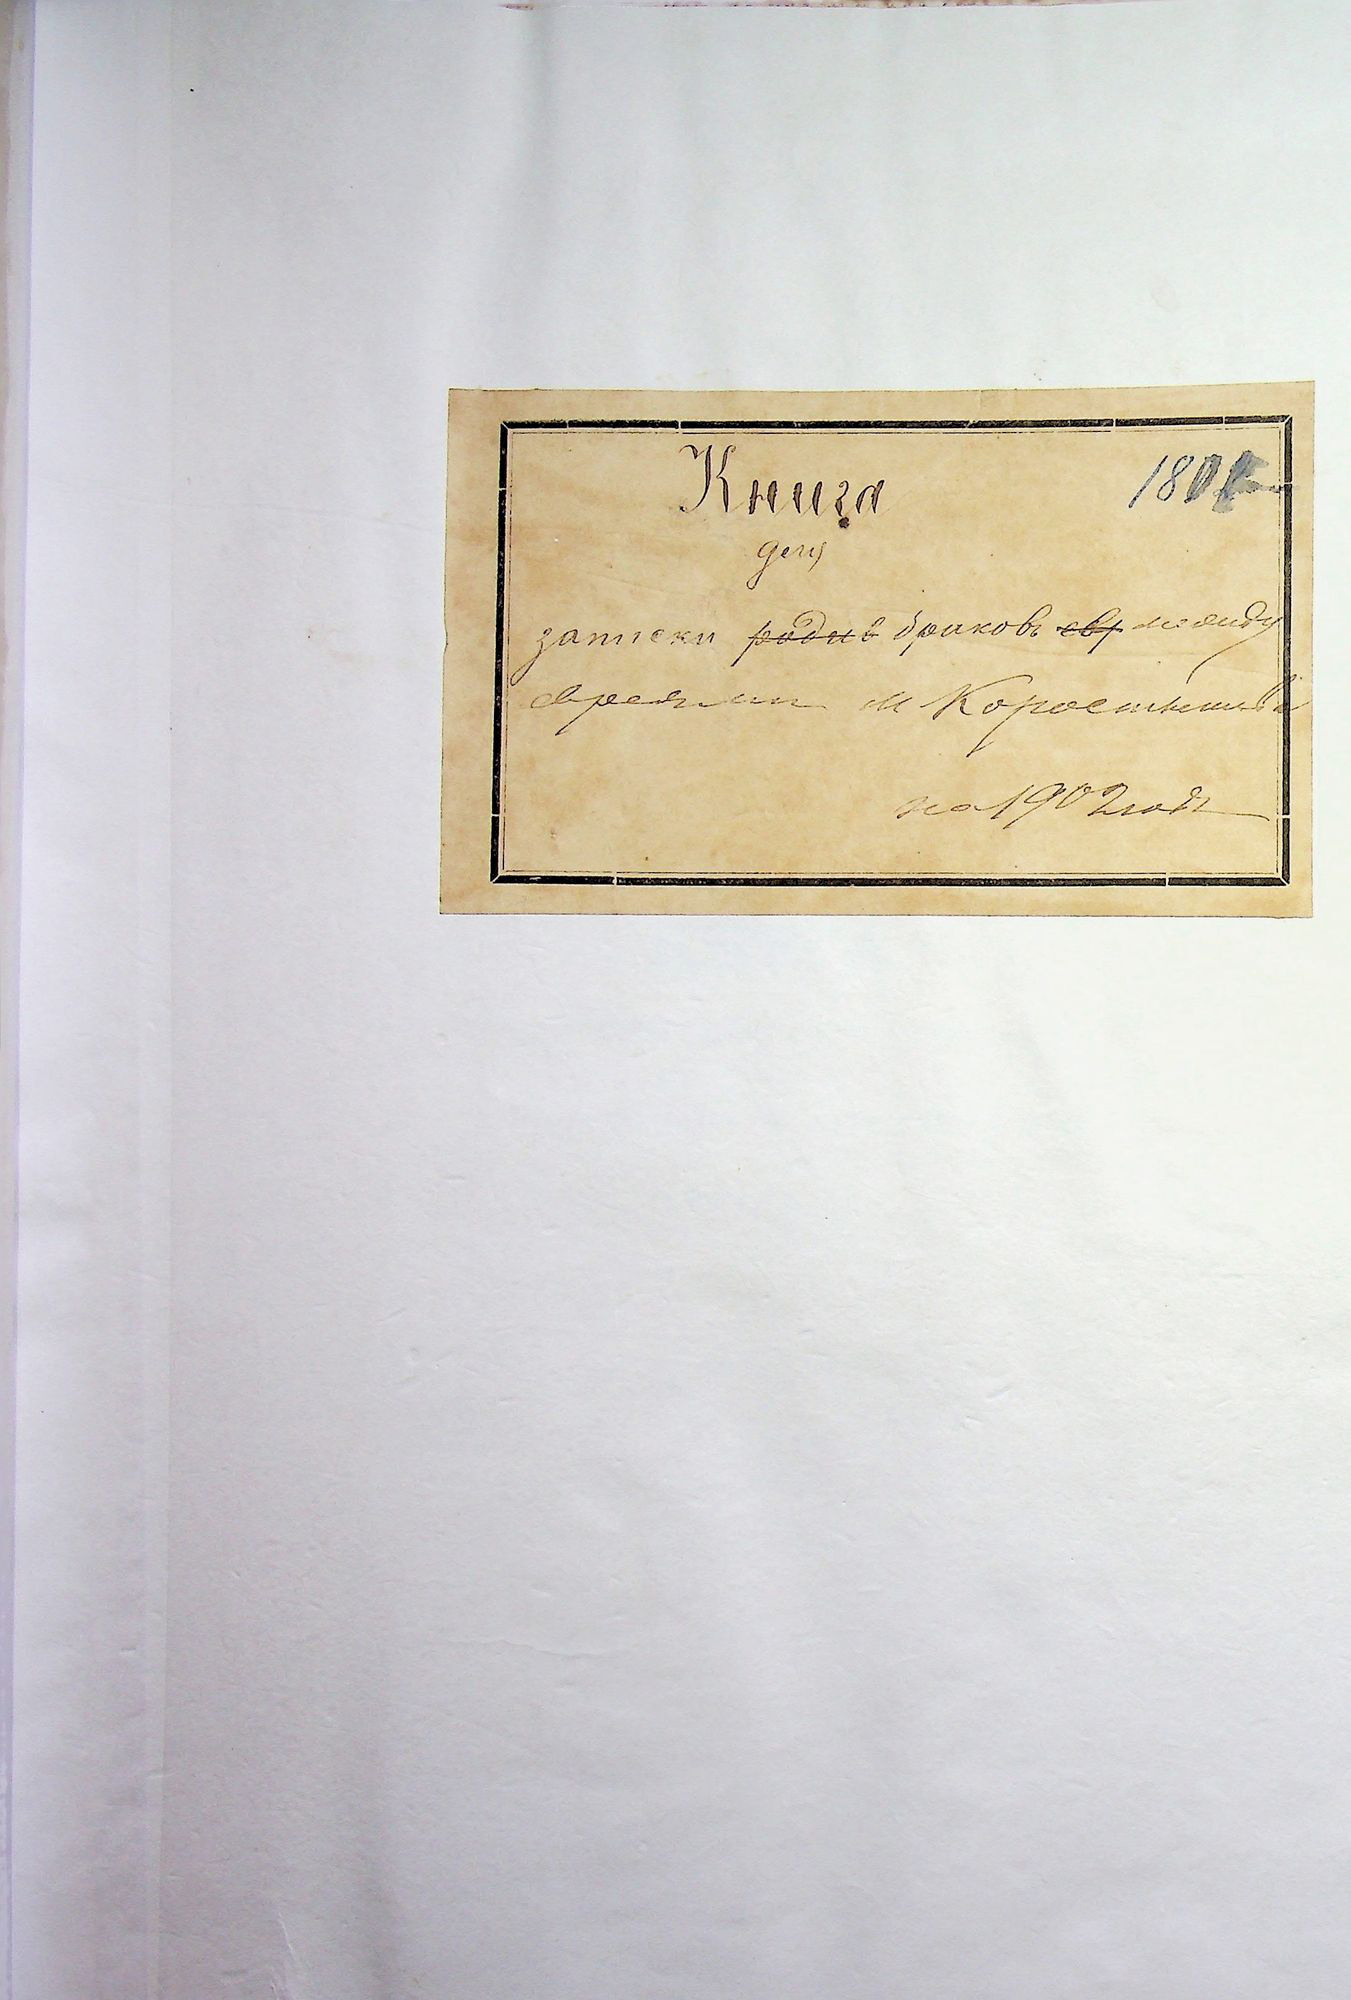 Книга
для
записки родив браковъ евр между
евреями м Коростышева
на 1902 годъ